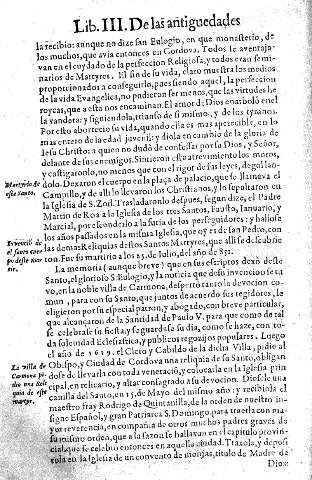 Lib. III. De las antiguedades
la recibio: aunque no dize san Eulogio, en que monasterio, de
los muchos, que avia entonces en Cordova. Todos le aventaja-
van en el cuydado de la perfeccion Religiosa, y todos eran semi-
narios de Martyres. El fin de su vida, claro muestra los medios
proporcionados a conseguirlo, pues siendo aquel, la perfeccion
de la vida Evangelica, no pudieron ser menos, que las virtudes he
roycas, que a esta nos encaminan. El amor de Dios enarbolò en el
la vandera: y siguiendola, triunfo de si mismo, y de los tyranos.
Por esto aborrecio su vida, quando ella es mas apetecible, en lo
mas entero de la edad juvenil; y diola en cambio de la gloria de
Jesu Christo: a quien no dudò de confessar por su Dios, y Señor,
delante de sus enemigos. Sintieron este atrevimiento los moros,
y castigaronlo, no menos que con el rigor de sus leyes, degollan-
dolo. Dexaron el cuerpo en la plaça de palacio, que se llamava el
Campillo, y de alli lo llevaron los Christianos, y lo sepultaron en
la Iglesia de S. Zoil. Trasladaronlo despues, segun dize, el Padre
Martin de Roa a la Iglesia de los tres Santos, Fausto, Ianuario, y
Marcial, por escondelo a la furia de los perseguidores: y hallose
los años passados en la misma Iglesia, que oy es de san Pedro, con
las demas Reliquias destos Santos Martyres, que alli se descubrie
ron. Fue su martirio a los 25. de Iulio, del año de 852.
La memoria (aunque breve) que en sus escriptos dexò deste
Santo, el glorioso S. Eulogio, y la noticia que de su invencion se tu
vo, en la noble villa de Carmona, despertò tanto la devocion co-
mun, para con su Santo, que juntos de acuerdo sus regidores, le
eligieron por su especial patron, y abogado, con breve particular,
que alcançaron de la Santidad de Paulo V. para que como de tal
se celebrasse su fiesta, y se guardasse su dia, como se haze, con to-
da solenidad Eclesiastica, y publicos regozijos populares. Luego
el año de 1619. el Clero y Cabildo de la dicha Villa, pidio al
Obispo, y Ciudad de Cordova una reliquia de su Santo, obligan
dose de llevarla con toda veneracion, y colocarla en la Iglesia prin
cipal, en relicario, y altar consagrado a su devocion. Diosele una
canilla del Santo, en 15. de Mayo del mismo año: y recibiola el
maestro fray Rodrigo de Quintanilla, de la orden de nuestro in-
signe Español, y gran Patriarca S. Domingo, para traerla con ma-
yor reverencia, en compañia de otros muchos padres graves de
su mismo orden, que a la sazon se hallavan en el capitulo provin-
cial, que se celebrò entonces en aquella ciudad. Traxola, y deposi
tola en la Iglesia de un convento de monjas, titulo de Madre de
Dios:
Martyrio de
este Santo.
Invenciõ de
el santo cuer
po deste mar
tir.
La villa de
Carmona pi-
dio una Reli
quia de este
martyr.